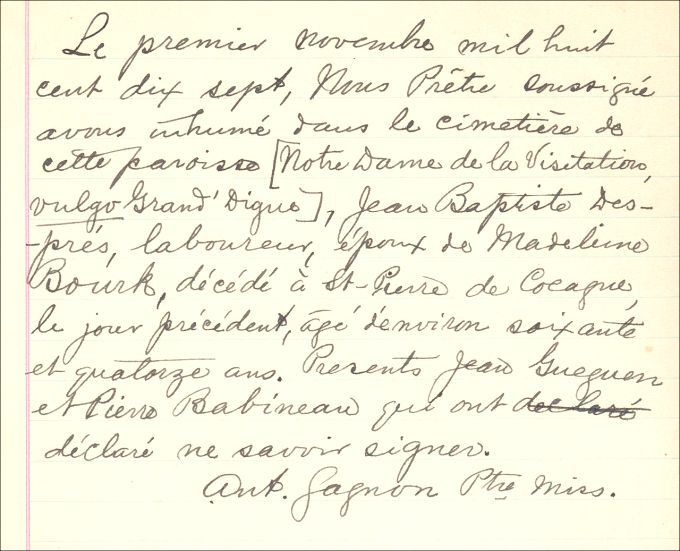 Le premier novembre mil huit
cent dix sept, Nous Prêtre soussigné
avons inhumé dans le cimetière de
cette paroisse [Notre Dame de la Visitation,
vulgo Grand' Digue], Jean Baptiste Des-
-prés, laboureur, époux de Madeleine
Bourk, décédé à St-Pierre de Cocagne,
le jour précédent, âgé d'environ soixante
et quatorze ans. Presents Jean Gueguen
et Pierre Babineau qui ont declaré
déclaré ne savoir signer.
Ant. Gagnon Ptre Miss.